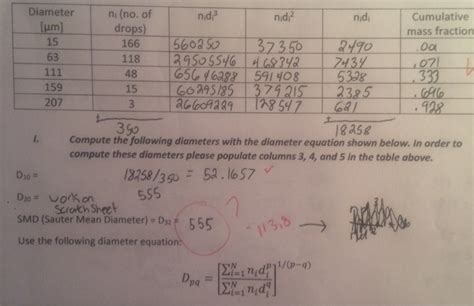 Diameter [µm] nᵢ (no. of drops) nᵢdᵢ³ nᵢdᵢ² nᵢdᵢ Cumulative mass fraction
15 166 560250 37350 2490
63 118 29505546 468342 7434 .071
111 48 65646288 591408 5328 .333
159 15 60295185 379215 2385 .696
207 3 26609229 128547 621 .928
350 18258
I. Compute the following diameters with the diameter equation shown below. In order to
compute these diameters please populate columns 3, 4, and 5 in the table above.
D₁₀ = 18258/350 = 52.1657
D₂₀ = work on scratch sheet 555
SMD (Sauter Mean Diameter) = D₃₂ = 555 ? 113.8
Use the following diameter equation:
D_pq = [∑ᵢ₌₁ᴺ nᵢdᵢᵖ / ∑ᵢ₌₁ᴺ nᵢdᵢ^q]^1/(p−q)